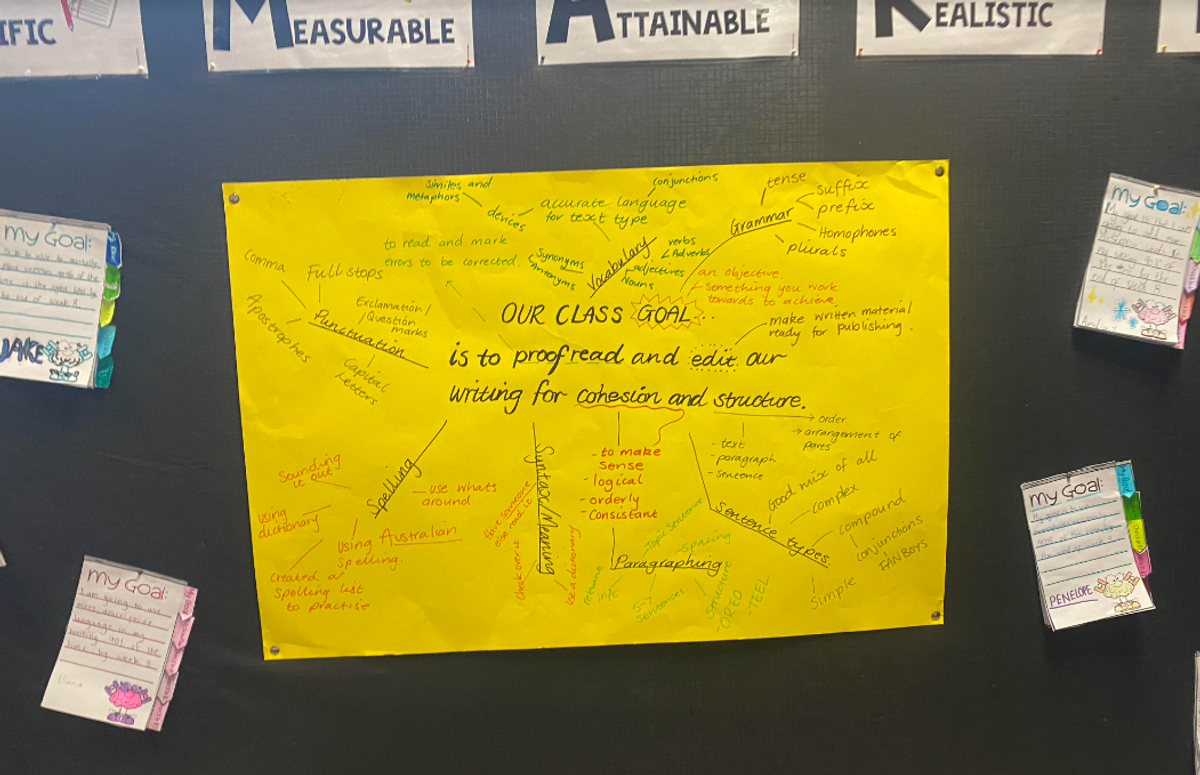 IFIC
MEASURABLE
ATTAINABLE
REALISTIC
OUR CLASS GOAL...
is to proofread and edit our
writing for cohesion and structure.
similes and
metaphors
devices
accurate language
for text type
conjunctions
Vocabulary
Synonyms
Antonyms
verbs
Adverbs
adjectives
Nouns
to read and mark
errors to be corrected.
Grammar
tense
suffix
prefix
Homophones
plurals
an objective.
something you work
towards to achieve
make written material
ready for publishing.
comma
Full stops
Exclamation/
Question
marks
Punctuation
Apostrophes
Capital
Letters
Spelling
Sounding
it out
using
dictionary
use whats
around
using Australian
Spelling.
created a
spelling list
to practise
Syntax/Meaning
Have someone
else read it
check over it
use a dictionary
- to make
sense
- logical
- orderly
- Consistant
- text
- paragraph
- sentence
order
arrangement of
parts
Sentence types
Good mix of all
complex
compound
conjunctions
FANBOYS
Simple
Paragraphing
Topic sentence
spacing
sentences
Structure
- OREO
- TEEL
my Goal:
JAKE
my Goal:
I am going to use
more descriptive
language in my
writing
time by week 8
my Goal:
my Goal:
PENELOPE